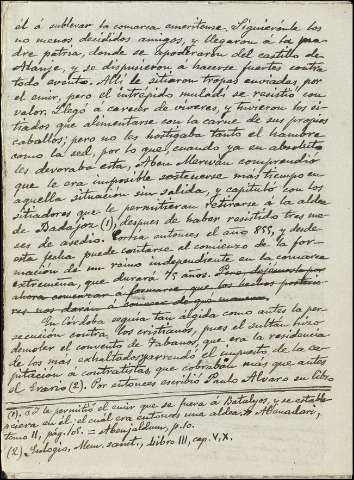 él á sublevar la comarca emeritense. Siguiéronle los
no menos decididos amigos, y llegaron á la pa-
dre patria, donde se apoderaron del castillo de
Alanje, y se dispusieron a hacerse fuertes contra
todo evento. Allí le sitiaron tropas enviadas por
el emir, pero el intrépido muladí se resistió con
valor. Llegó a carecer de víveres, y tuvieron los si-
tiados que alimentarse con la carne de sus propios
caballos; pero no les hostigaba tanto el hambre
como la sed, por lo que, cuando ya en absoluto
les devoraba esta, Aben Merwan comprendió
que le era imposible sostenerse más tiempo en
aquella situación sin salida, y capituló con los
sitiadores que le permitieran retirarse á la aldea
de Badajoz (1), despues de haber resistido tres me-
ses de asedio. Corría entonces el año 855, y desde
esta fecha puede contarse el comienzo de la for-
mación de un reino independiente en la comarca
extremeña, que durará 75 años. Pero dejémosla por
ahora comenzar á formarse que los hechos posterio-
res nos darán á conocer
En Córdoba seguía tan álgida como antes la per-
secución contra los cristianos, pues el sultán hizo
demoler el convento de Tabanos, que era la residencia
de los más exhaltados, arrendó el impuesto de la ca-
pitación á contratistas que cobraban más que antes
el Erario (2). Por entonces escribió Paulo Alvaro su libro
(1). le permitió el emir que se fuera á Batalyos, y se estable-
ciera en él; el cual era entonces una aldea.
tomo II, pág. 105. = Abenjaldum, p. 10.
(2). Eulogio, Mem. sanct., libro III, cap. V, X.